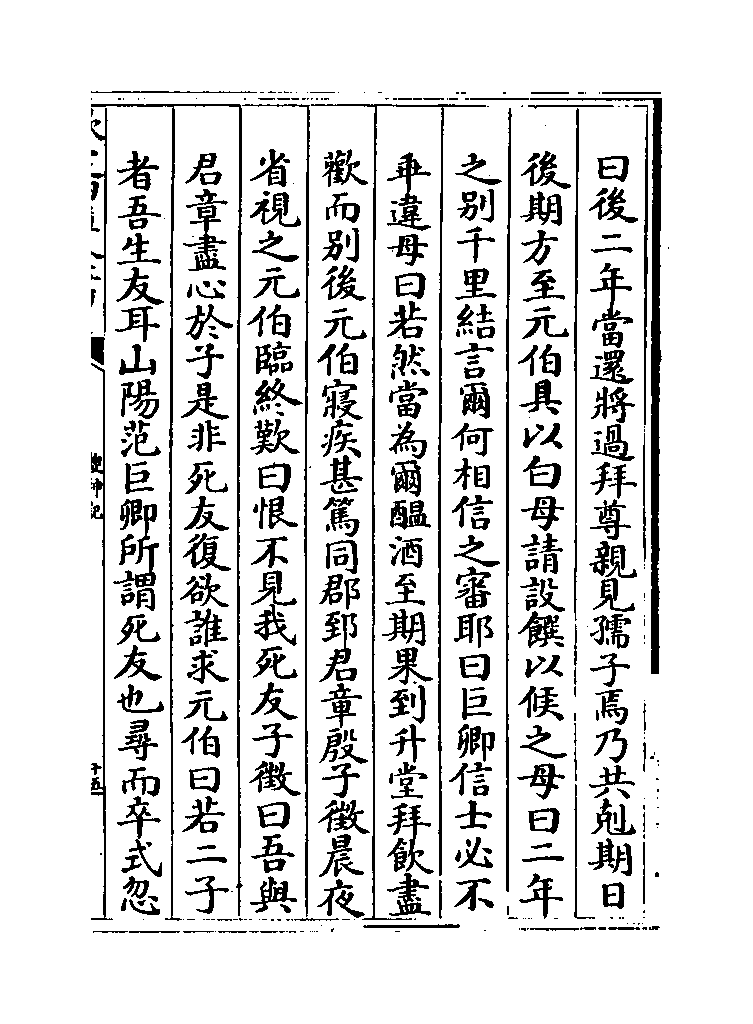 曰後二年當還將過拜尊親見孺子焉乃共剋期日
後期方至元伯具以白母請設饌以候之母曰二年
之别千里結言爾何相信之審耶曰巨卿信士必不
乖違母曰若然當為爾醖酒至期果到升堂拜飲盡
歡而别後元伯寢疾甚篤同郡郅君章殷子徵晨夜
省視之元伯臨終歎曰恨不見我死友子徵曰吾與
君章盡心於子是非死友復欲誰求元伯曰若二子
者吾生友耳山陽范巨卿所謂死友也尋而卒式忽
搜神記
十五